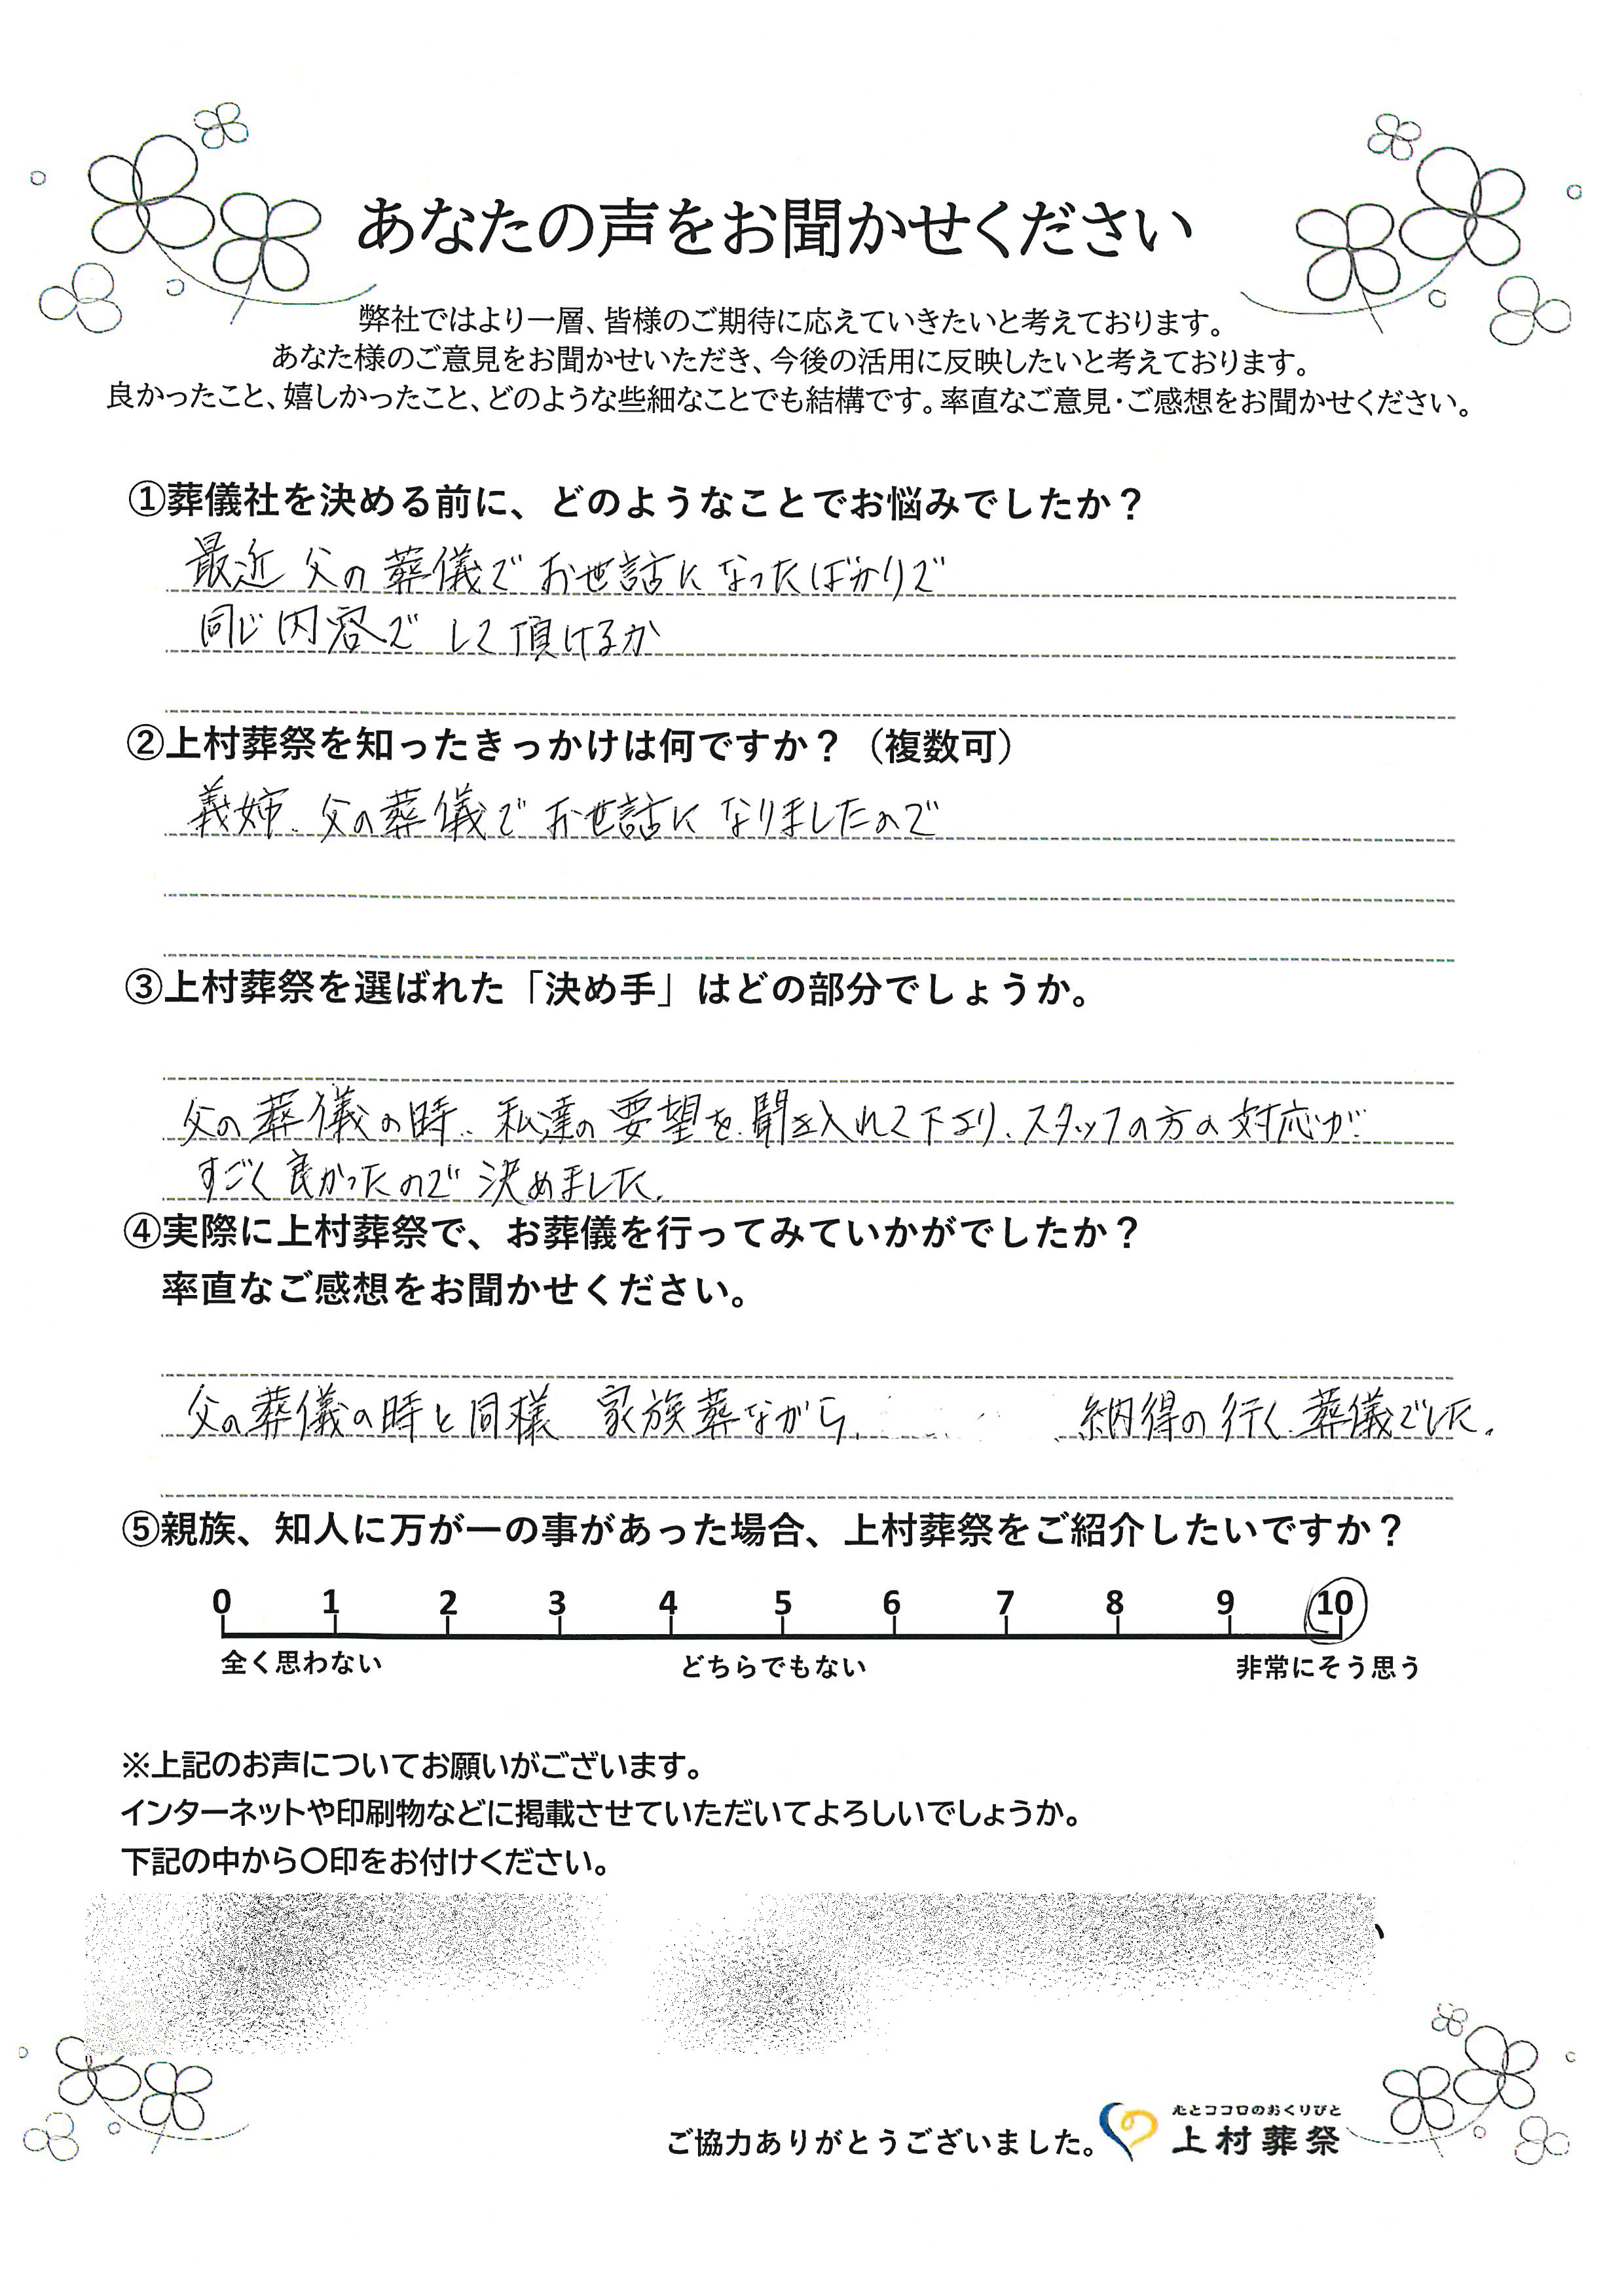 あなたの声をお聞かせください
弊社ではより一層、皆様のご期待に応えていきたいと考えております。
あなた様のご意見をお聞かせいただき、今後の活用に反映したいと考えております。
良かったこと、嬉しかったこと、どのような些細なことでも結構です。率直なご意見・ご感想をお聞かせください。
①葬儀社を決める前に、どのようなことでお悩みでしたか？
最近 父の葬儀でお世話になったばかりで
同じ内容でして頂けるか
②上村葬祭を知ったきっかけは何ですか？（複数可）
義姉、父の葬儀でお世話になりましたので
③上村葬祭を選ばれた「決め手」はどの部分でしょうか。
父の葬儀の時、私達の要望を聞き入れて下さり、スタッフの方の対応が
すごく良かったので決めました。
④実際に上村葬祭で、お葬儀を行ってみていかがでしたか？
率直なご感想をお聞かせください。
父の葬儀の時と同様 家族葬ながら、 納得の行く葬儀でした。
⑤親族、知人に万が一の事があった場合、上村葬祭をご紹介したいですか？
0 1 2 3 4 5 6 7 8 9 10
全く思わない どちらでもない 非常にそう思う
※上記のお声についてお願いがございます。
インターネットや印刷物などに掲載させていただいてよろしいでしょうか。
下記の中から〇印をお付けください。
心とココロのおくりびと
ご協力ありがとうございました。 上村葬祭